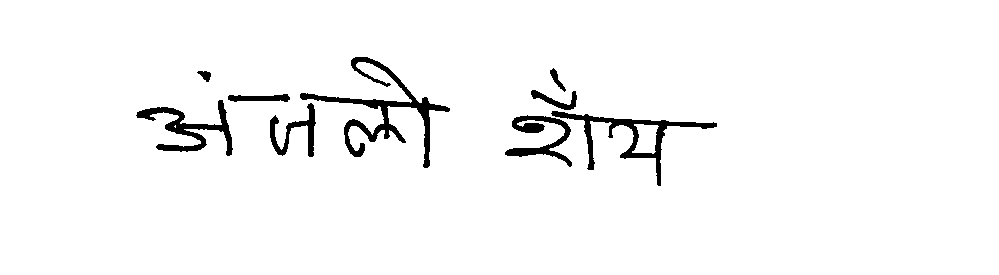 अंजली राँय